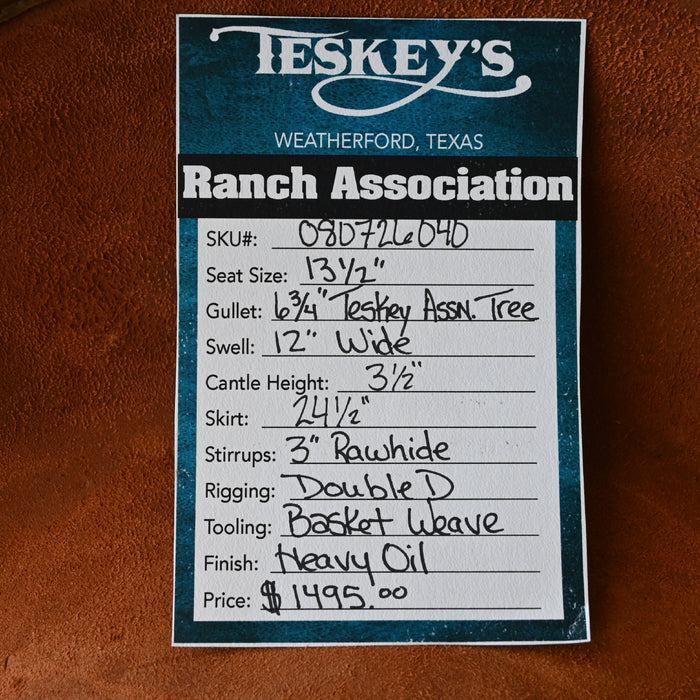 TESKEY'S
WEATHERFORD, TEXAS
Ranch Association
SKU#: 080726040
Seat Size: 13 1/2"
Gullet: 6 3/4" Teskey Assn. Tree
Swell: 12" Wide
Cantle Height: 3 1/2"
Skirt: 24 1/2"
Stirrups: 3" Rawhide
Rigging: Double D
Tooling: Basket Weave
Finish: Heavy Oil
Price: $1495.00